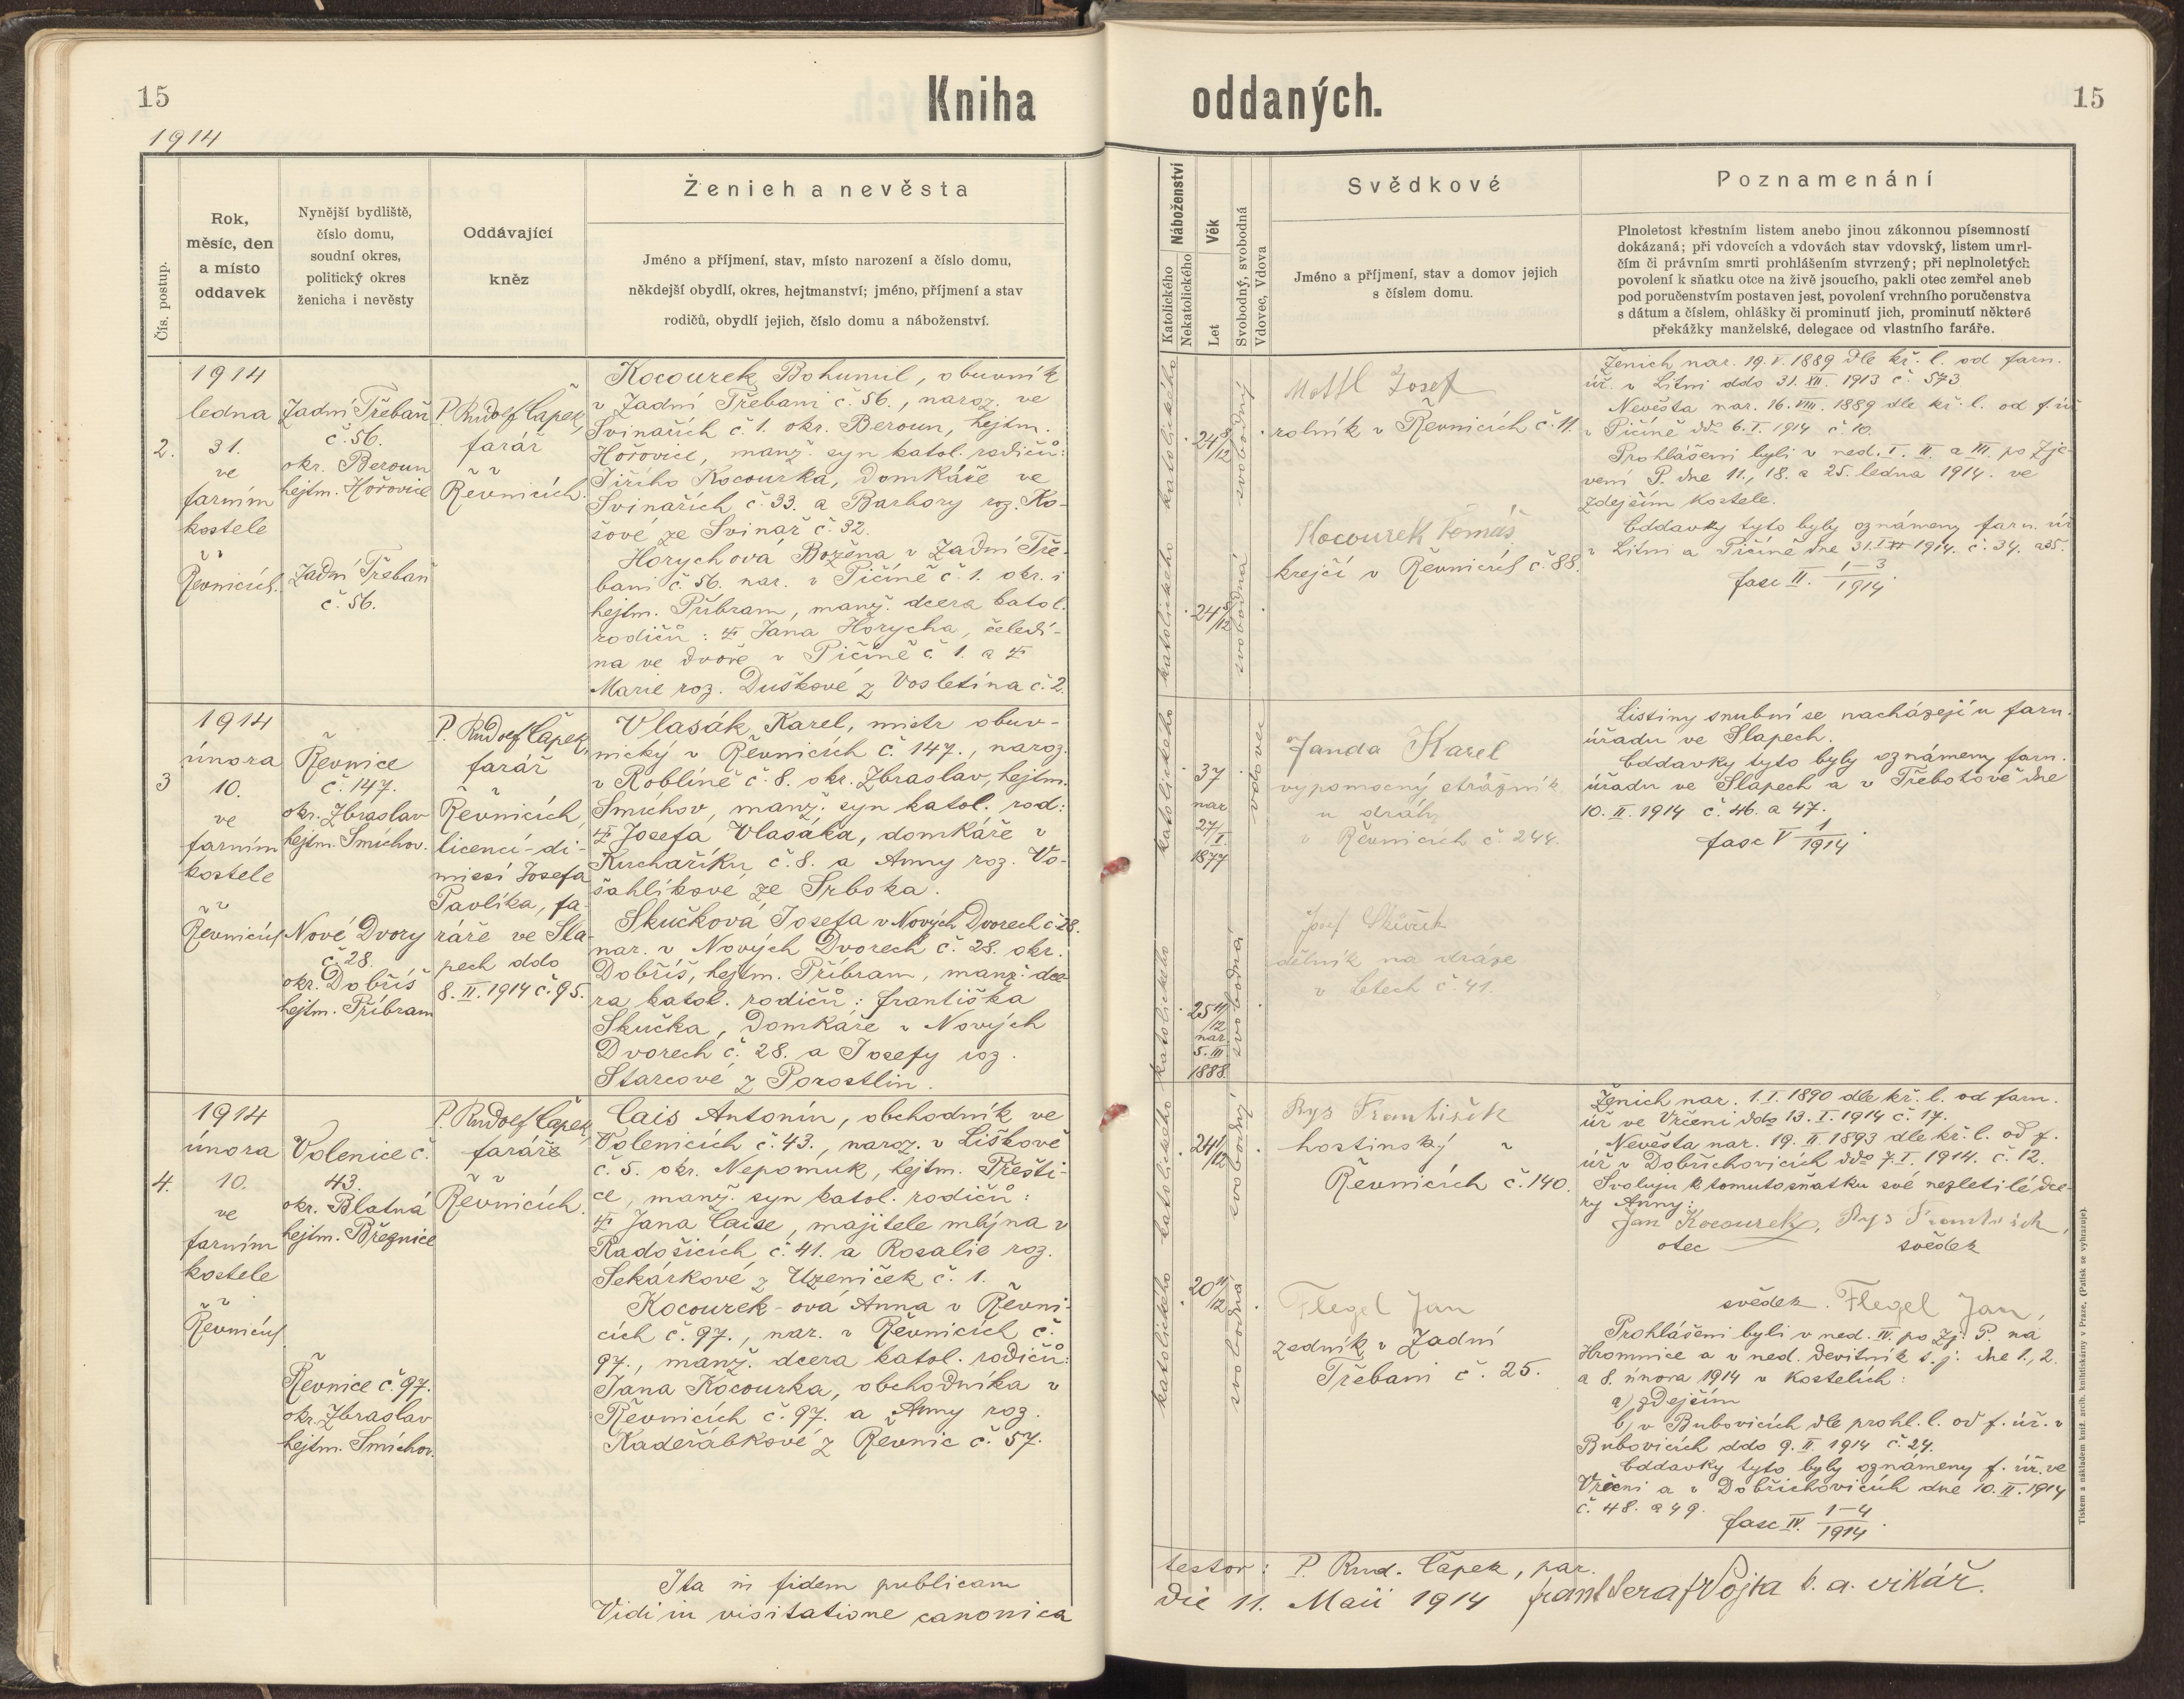 15
Kniha
oddaných.
15
1914
Čís. postup.
Rok,
měsíc, den
a místo
oddavek
Nynější bydliště,
číslo domu,
soudní okres,
politický okres
ženicha i nevěsty
Oddávající
kněz
Ženich a nevěsta
Jméno a příjmení, stav, místo narození a číslo domu,
někdejší obydlí, okres, hejtmanství; jméno, příjmení a stav
rodičů, obydlí jejich, číslo domu a náboženství.
Náboženství
Katolického
Nekatolického
Věk
Let
Svobodný, svobodná
Vdovec, Vdova
Svědkové
Jméno a příjmení, stav a domov jejich
s číslem domu.
Poznamenání
Plnoletost křestním listem anebo jinou zákonnou písemností
dokázaná; při vdovcích a vdovách stav vdovský, listem umrl-
čím či právním smrti prohlášením stvrzený; při neplnoletých
povolení k sňatku otce na živě jsoucího, pakli otec zemřel aneb
pod poručenstvím postaven jest, povolení vrchního poručenstva
s dátum a číslem, ohlášky či prominutí jich, prominutí některé
překážky manželské, delegace od vlastního faráře.
2.
1914
ledna
31.
ve
farním
kostele
v
Řevnicích.
Zadní Třebaň
č. 56.
okr. Beroun
hejtm. Hořovice
Zadní Třebaň
č. 56.
P. Rudolf Čapek,
farář
v
Řevnicích.
Kocourek Bohumil, obuvník
v Zadní Třebani č. 56., naroz. ve
Svinařích č. 1. okr. Beroun, hejtm.
Hořovice, manž. syn katol. rodičů:
Jiřího Kocourka, domkáře ve
Svinařích č. 33. a Barbory roz. Ko-
šové ze Svinař č. 32.
Horychová Božena v Zadní Tře-
bani č. 56. nar. v Pičíně č. 1. okr. i
hejtm. Příbram, manž. dcera katol.
rodičů: † Jána Horycha, čeledí-
na ve dvoře v Pičíně č. 1. a †
Marie roz. Duškové z Vosletína č. 2.
katolického
24 8/12
svobodný
katolického
24 5/12
svobodná
Mottl Josef
rolník v Řevnicích č. 11.
Kocourek Tomáš
krejčí v Řevnicích č. 88.
Ženich nar. 19. V. 1889 dle kř. l. od farn.
úř. v Litni ddo 31. XII. 1913 č. 573.
Nevěsta nar. 16. VIII. 1889 dle kř. l. od f. úř
v Pičíně ddo 6. I. 1914 č. 10.
Prohlášeni byli v ned. I. II. a III. po Zje-
vení P. dne 11., 18. a 25. ledna 1914. ve
zdejším kostele.
Oddavky tyto byly oznámeny farn. úř
v Litni a Pičíně dne 31. I. 1914. č. 34. a 35.
fasc II. 1–3/1914.
3
1914
února
10.
ve
farním
kostele
v
Řevnicích
Řevnice
č. 147.
okr. Zbraslav
hejtm. Smíchov.
Nové Dvory
č. 28.
okr. Dobříš
hejtm. Příbram
P. Rudolf Čapek,
farář
v
Řevnicích,
licencí-di-
missí Josefa
Pavlíka, fa-
ráře ve Sla-
pech ddo
8. II. 1914 č. 95.
Vlasák Karel, mistr obuv-
nický v Řevnicích č. 147., naroz.
v Roblíně č. 8. okr. Zbraslav, hejtm.
Smíchov, manž. syn katol. rod:
† Josefa Vlasáka, domkáře v
Kuchaříku č. 8. a Anny roz. Vo-
šahlíkové ze Srbska.
Skučková Josefa v Nových Dvorech č. 28.
nar. v Nových Dvorech č. 28. okr.
Dobříš, hejtm. Příbram, manž. dce-
ra katol. rodičů: Františka
Skučka, domkáře v Nových
Dvorech č. 28. a Josefy roz.
Starcové z Porostlin.
katolického
37
nar
27/I.
1877
vdovec
katolického
25 11/12
nar.
5. III
1888.
svobodná
Janda Karel
výpomocný strážník
u dráh,
v Řevnicích č. 244.
dělník na dráze
v Letech č. 41.
Listiny snubní se nacházejí u farn.
úřadu ve Slapech.
Oddavky tyto byly oznámeny farn.
úřadu ve Slapech a v Třebotově dne
10. II. 1914 č. 46. a 47.
fasc V 1/1914.
4.
1914
února
10.
ve
farním
kostele
v
Řevnicích
Volenice č.
43.
okr. Blatná
hejtm. Březnice
Řevnice č. 97.
okr. Zbraslav
hejtm. Smíchov.
P. Rudolf Čapek,
faráře
v
Řevnicích.
Cais Antonín, obchodník ve
Volenicích č. 43., naroz. v Liškově
č. 5. okr. Nepomuk, hejtm. Přešti-
ce, manž. syn katol. rodičů:
† Jana Caise, majitele mlýna v
Radošicích č. 41. a Rosalie roz.
Sekárkové z Uzeniček č. 1.
Kocourek-ová Anna v Řevni-
cích č. 97., nar. v Řevnicích č.
97., manž. dcera katol. rodičů:
Jána Kocourka, obchodníka v
Řevnicích č. 97. a Anny roz.
Kadeřábkové z Řevnic č. 57.
katolického
24 1/12
svobodný
katolického
20 11/12
svobodná
Rys František
hostinský v
Řevnicích č. 140.
Flegel Jan
zedník v Zadní
Třebani č. 25.
Ženich nar. 1. I. 1890 dle kř. l. od farn.
úř ve Vrčeni ddo 13. I. 1914 č. 17.
Nevěsta nar. 19. II. 1893 dle kř. l. od f.
úř v Dobřichovicích ddo 7. I. 1914. č. 12.
Svoluji k tomuto sňatku své nezletilé dce-
ry Anny:
Jan Kocourek, Rys František,
otec svědek
svědek. Flegel Jan,
Prohlášeni byli v ned. IV. po Zj. P. na
Hromnice a v ned. devítník t. j. dne 1., 2.
a 8. února 1914 v kostelích:
a) zdejším
b) v Bubovicích dle prohl. l. od f. úř. v
Bubovicích ddo 9. II. 1914 č. 24.
Oddavky tyto byly oznámeny f. úř. ve
Vrčeni a v Dobřichovicích dne 10. II. 1914
č. 48. a 49.
fasc IV. 1–4/1914.
Ita in fidem publicam
testor: P. Rud. Čapek, par.
Vidi in visitatione canonica
die 11. Maii 1914 Frant Seraf Vojta b. a. vikář.
Tiskem a nákladem kniž. arcib. knihtiskárny v Praze. (Patisk se vyhrazuje).